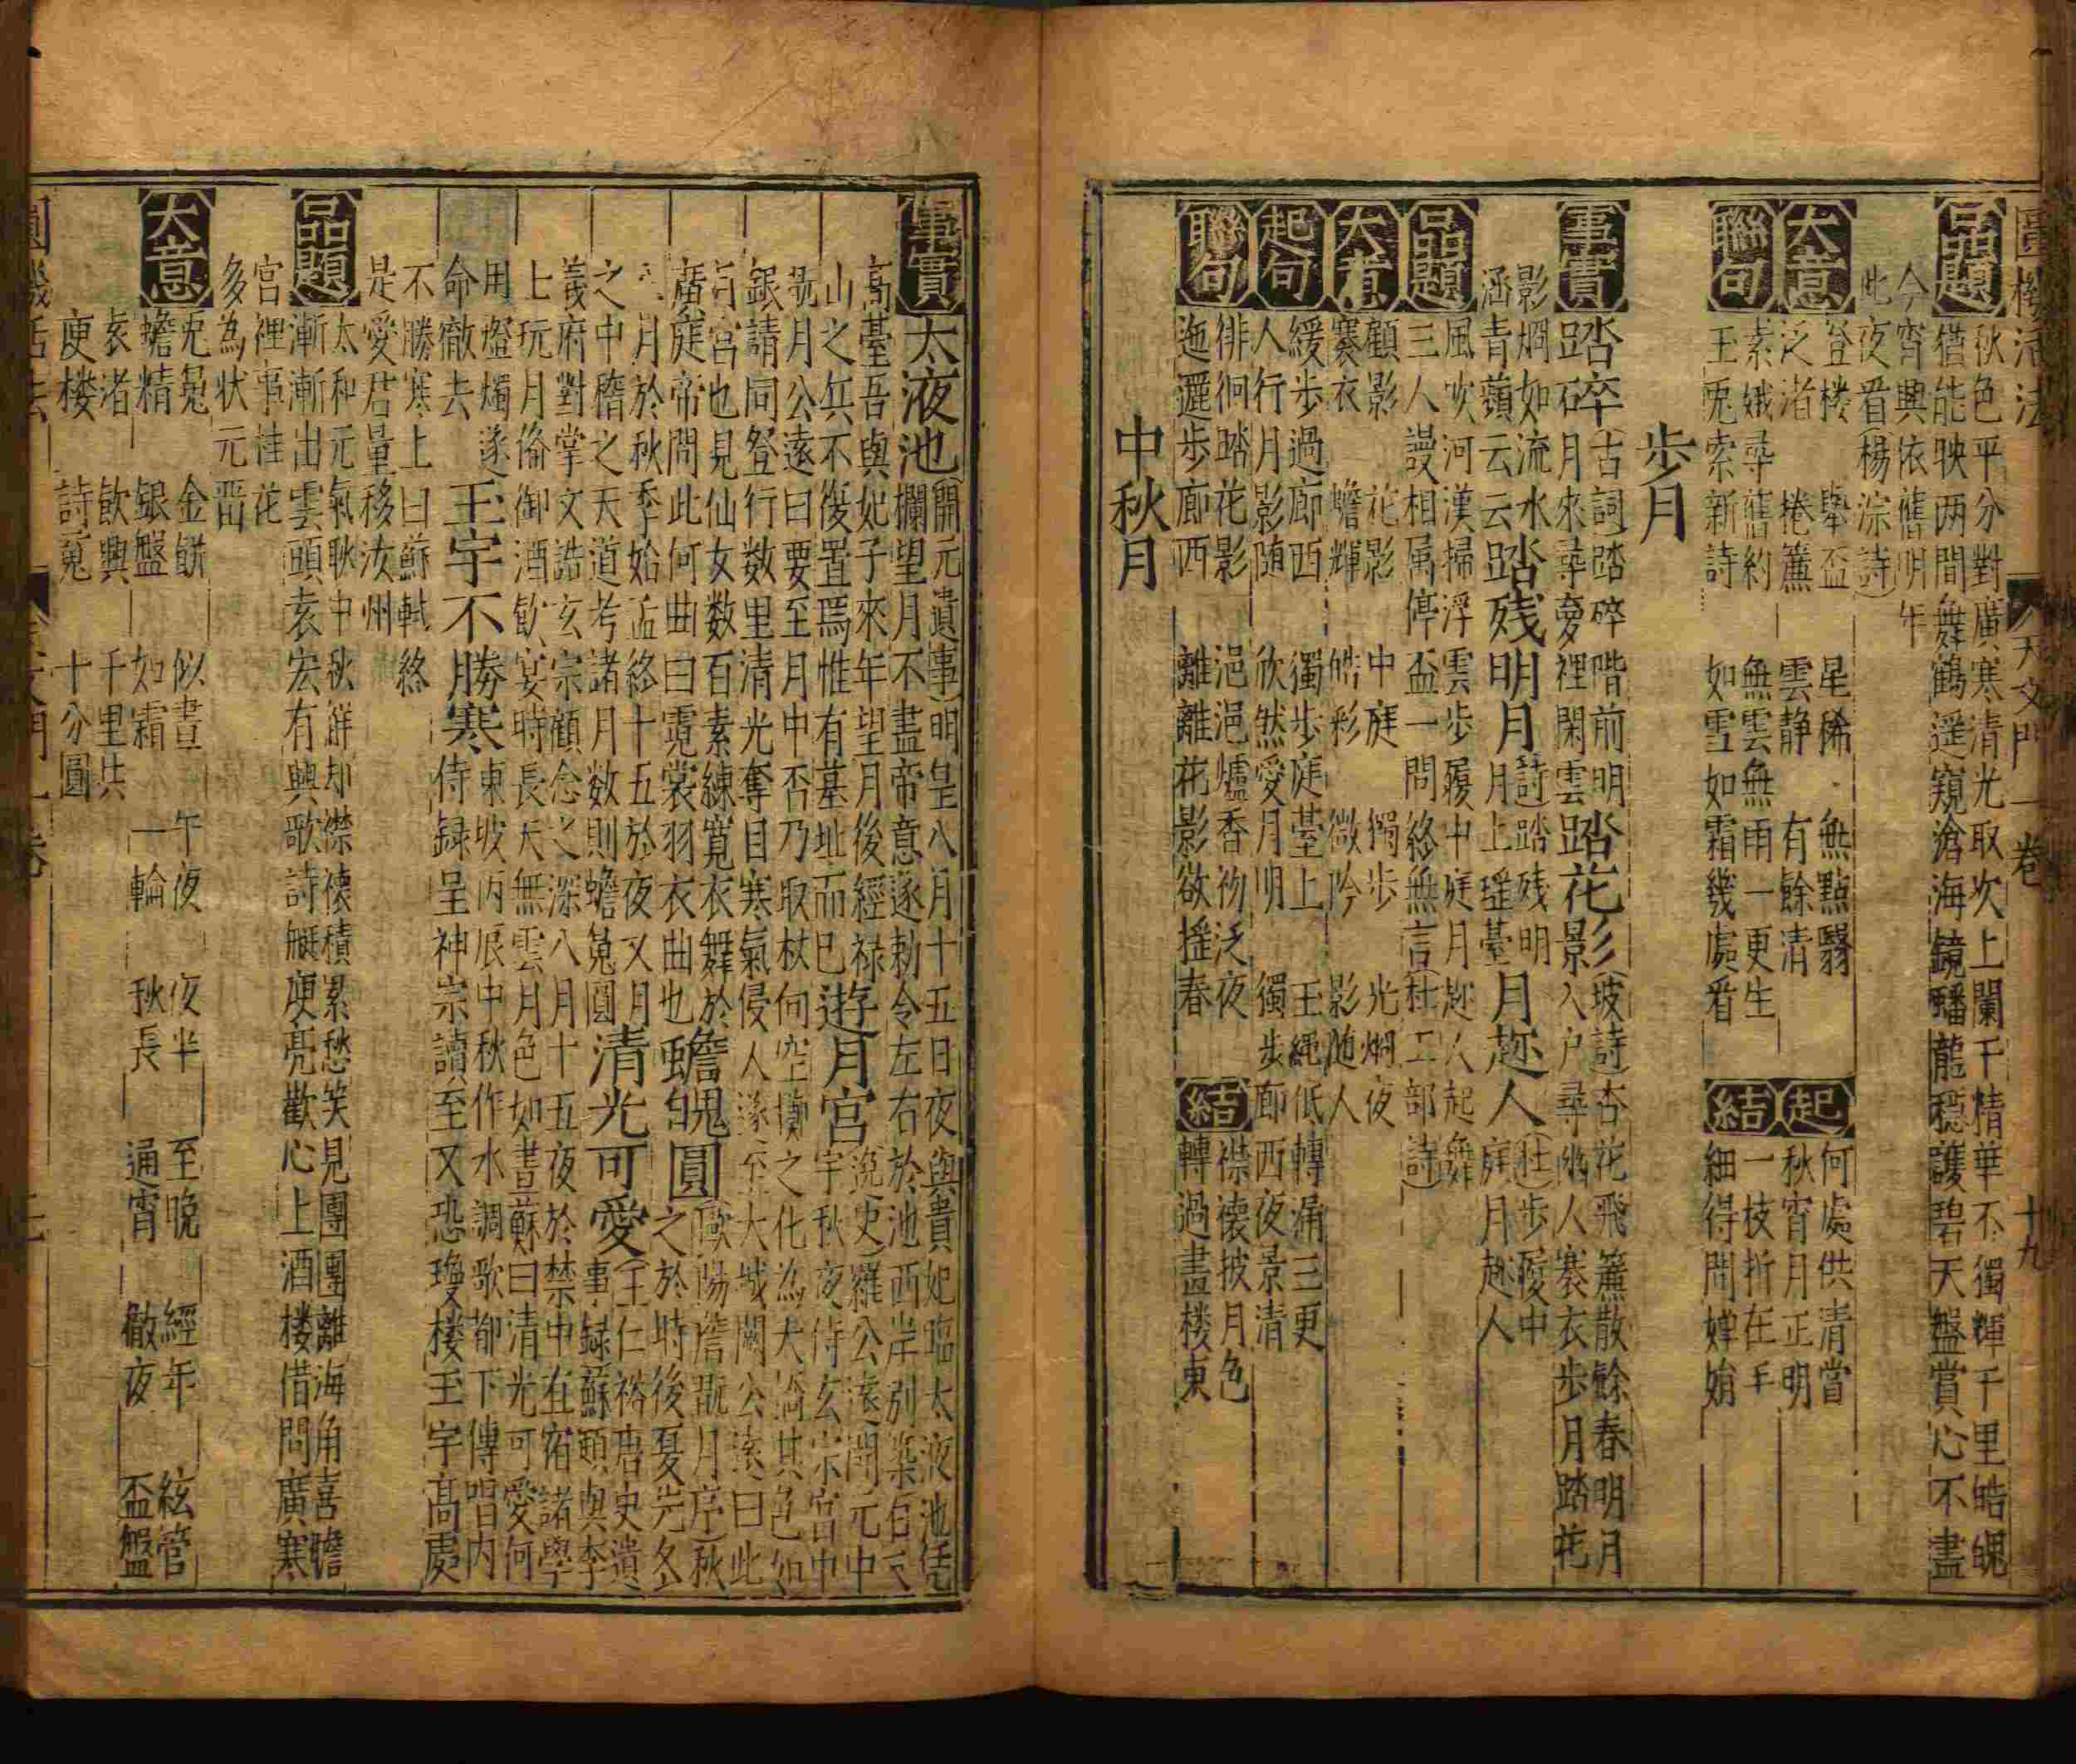 圓機活法 天文門一卷 十九
品題
秋色平分對廣寒清光取次上闌干精華不獨輝千里皓魄
猶能映两間舞鶴遥窺滄海鏡蟠龍穏護碧天盤賞心不盡
今宵興依舊明年
此夜看（楊淙詩）
大意
登樓 舉盃 星稀 無點翳
泛渚 捲簾 雲静 有餘清
起 何處供清當
秋宵月正明
聯句
素娥尋舊約 無雲無雨一更生
玉兎索新詩 如雪如霜幾處看
結 一枝折在手
細得問嬋娟
步月
事實
踏碎（古詞）踏碎階前明
月來尋夢裡閑雲踏花影（坡詩）杏花飛簾散餘春明月
入户尋幽人褰衣步月踏花
影烱如流水
涵青蘋云云踏残明月（詩）踏残明
月上瑶臺月趂人（杜）步屧中
庭月趂人
風吹河漢掃浮雲步履中庭月趂人起舞
三人謾相属停盃一問終無言（杜工部詩）
品題
大意
顧影 花影 中庭 獨步 光烱夜
褰衣 蟾輝 皓彩 微吟 影随人
起句
緩步過廊西 獨步庭臺上 玉繩低轉漏三更
人行月影随 欣然愛月明 獨步廊西夜景清
聯句
徘徊踏花影 浥浥爐香初泛夜
迤邐步廊西 離離花影欲摇春
結 襟懐披月色
轉過畫楼東
中秋月
事實
太液池（開元遺事）明皇八月十五日夜與貴妃臨太液池凭
欄望月不盡帝意遂勅令左右於池西岸别築百尺
高臺吾與妃子來年望月後經禄
山之兵不復置焉惟有墓址而已遊月宮（逸史）羅公遠開元中
中秋夜侍玄宗宮中
翫月公遠曰要至月中否乃取杖向空擲之化為大橋其色如
銀請同登行数里清光奪目寒氣侵人遂至大城闕公遠曰此
月宮也見仙女数百素練寛衣舞於
廣庭帝問此何曲曰霓裳羽衣曲也蟾魄圓（歐陽詹翫月序）秋
之於時後夏先冬
八月於秋季始孟終十五於夜又月
之中稽之天道考諸月数則蟾兔圓清光可愛（王仁裕唐史遺
事錄）蘇頲與李
義府對掌文誥玄宗顧念之深八月十五夜於禁中直宿諸學
上玩月俻御酒飲宴時長天無雲月色如晝蘇曰清光可愛何
用燈燭遂
命徹去玉宇不勝寒東坡丙辰中秋作水調歌都下傳唱内
侍録呈神宗讀至又恐瓊楼玉宇高處
不勝寒上曰蘇軾終
是愛君量移汝州
品題
太和元氣耿中秋鮮却襟懐積累愁笑見團團離海角喜瞻
漸漸出雲頭袁宏有興歌詩艇庾亮歡心上酒楼借問廣寒
宮裡事桂花
多為状元畱
大意
兎兔 金餅 似晝 午夜 夜半 至晚 經年 絃管
蟾精 銀盤 如霜 一輪 秋長 通宵 徹夜 盃盤
袁渚 飲興 千里共
庾楼 詩寃 十分圓